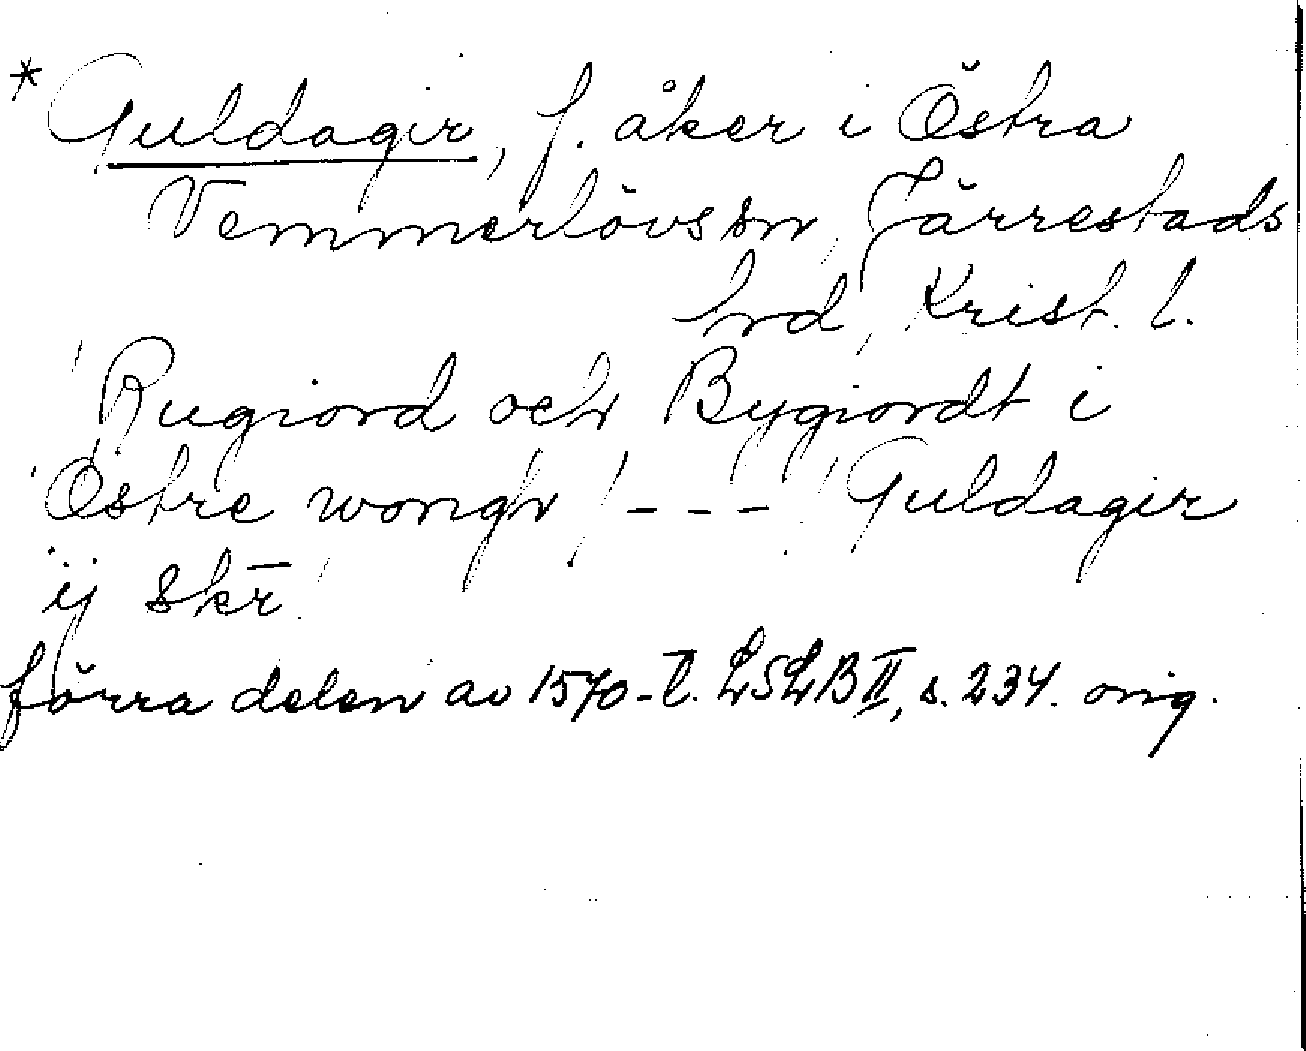 * Guldager, f. åker i Östra
Vemmerlövs sn, Järrestads
hrd, Krist. l.
'Rugiord och Bygiordt i
Østre wongh / - - - Guldager
ij skr̅.'
förra delen av 1570-t. LSLB II, s. 234. orig.